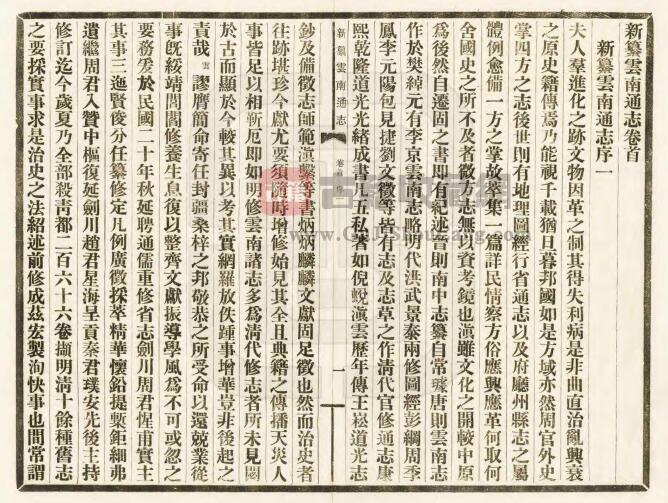 新纂雲南通志卷首
新纂雲南通志序一
夫人羣進化之跡文物因革之制其得失利病是非曲直治亂興衰
之原史籍傳焉乃能視千載猶旦暮邦國如是方域亦然周官外史
掌四方之志後世則有地理圖經行省通志以及府廳州縣志之屬
體例愈備一方之掌故萃集一篇詳民情察方俗應興應革何取何
舍國史之所不及者微方志無以資考鏡也滇雖文化之開較中原
為後然自遷固之書即有紀述晉則南中志纂自常璩唐則雲南志
作於樊綽元有李京雲南志略明代洪武景泰兩修圖經彭綱周季
鳳李元陽包見捷劉文徵等皆有志及志草之作清代官修通志康
熙乾隆道光光緒成書凡五私著如倪蛻滇雲歷年傳王崧道光志
新纂雲南通志
卷首 序
一
鈔及備徵志師範滇繫等書炳炳麟麟文獻固足徵也然而治史者
往跡堪珍今獻尤要須隨時增修始見其全且典籍之傳播天災人
事皆足以相斲厄即如明修雲南諸志多為清代修志者所未見閟
於古而顯於今較其異以考其實網羅放佚踵事增華豈非後起之
責哉雲謬膺簡命寄任封疆桑梓之邦敬恭之所受命以還兢業從
事既綏靖閭閻修養生息復以整齊文獻振導學風為不可或忽之
要務爰於民國二十年秋延聘通儒重修省志劍川周君惺甫實主
其事三迤賢俊分任纂修定凡例廣徵採萃精華懷鉛提槧鉅細弗
遺繼周君入贊中樞復延劍川趙君星海呈貢秦君璞安先後主持
修訂迄今歲夏乃全部殺青都二百六十六卷擷明清十餘種舊志
之要採實事求是治史之法紹述前修成茲宏製洵快事也間常謂